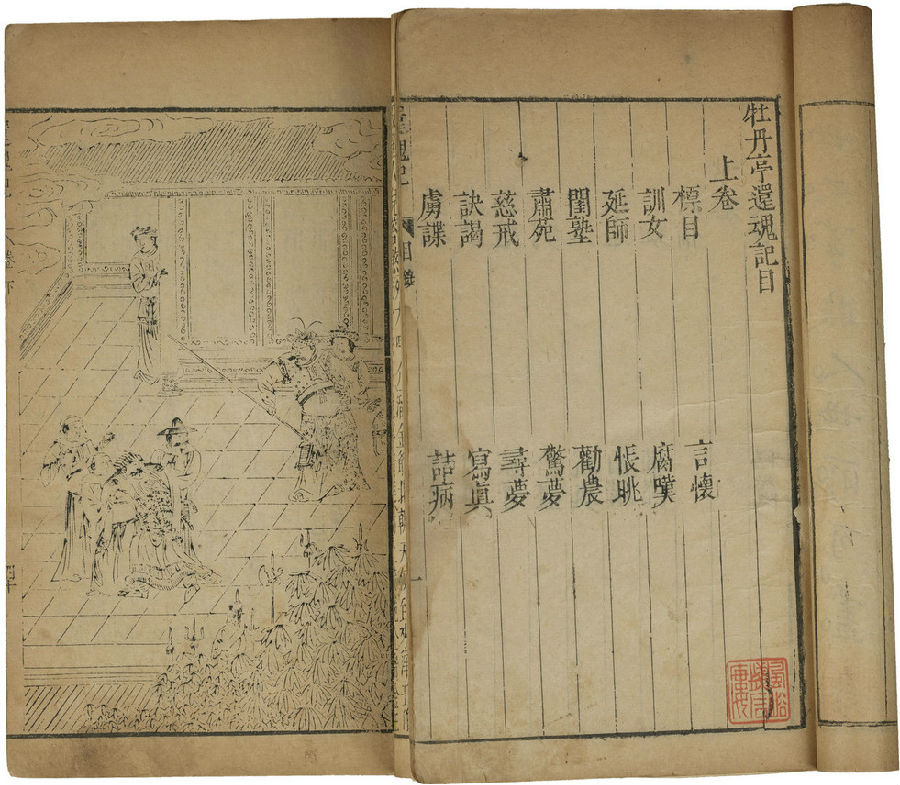 牡丹亭還魂記目
上卷
標目 言懷
訓女 腐嘆
延師 悵眺
閨塾 勸農
肅苑 驚夢
慈戒 尋夢
訣謁 寫眞
虜諜 詰病